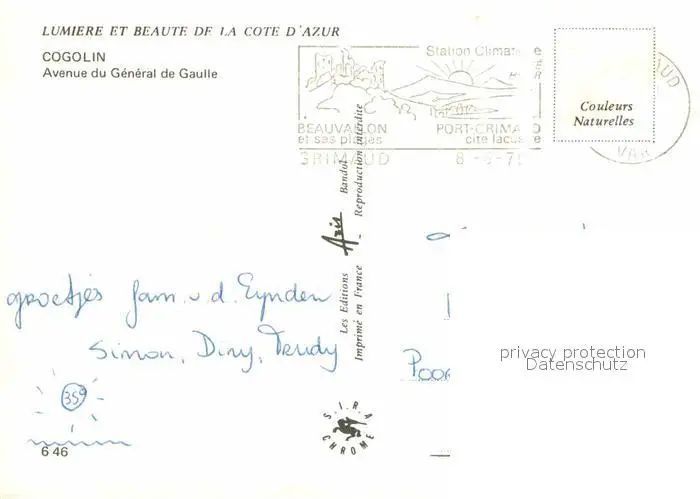 LUMIERE ET BEAUTE DE LA COTE D'AZUR
COGOLIN
Avenue du Général de Gaulle
Station Climat
BEAUVALLON
et ses plages
PORT-GRIMAUD
cité lacustre
GRIMAUD
VAR
Couleurs
Naturelles
Les Editions Aris Bandol
Imprimé en France - Reproduction interdite
groetjes fam. v.d. Eynden
Simon, Diny, Trudy
35°
6 46
S.I.R.A.
CHROME
privacy protection
Datenschutz